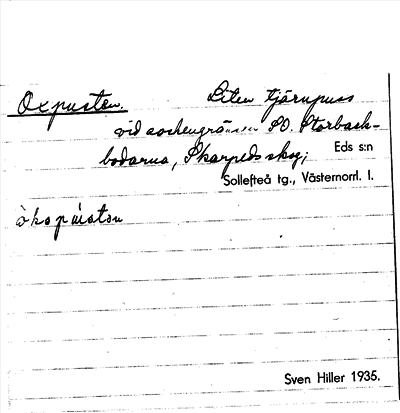 Oxpusten. Liten tjärnpuss
vid sockengränsen SO. Storback-
bodarna, Skarpeds skog; Eds s:n
Sollefteå tg., Västernorrl. l.
Sven Hiller 1935.